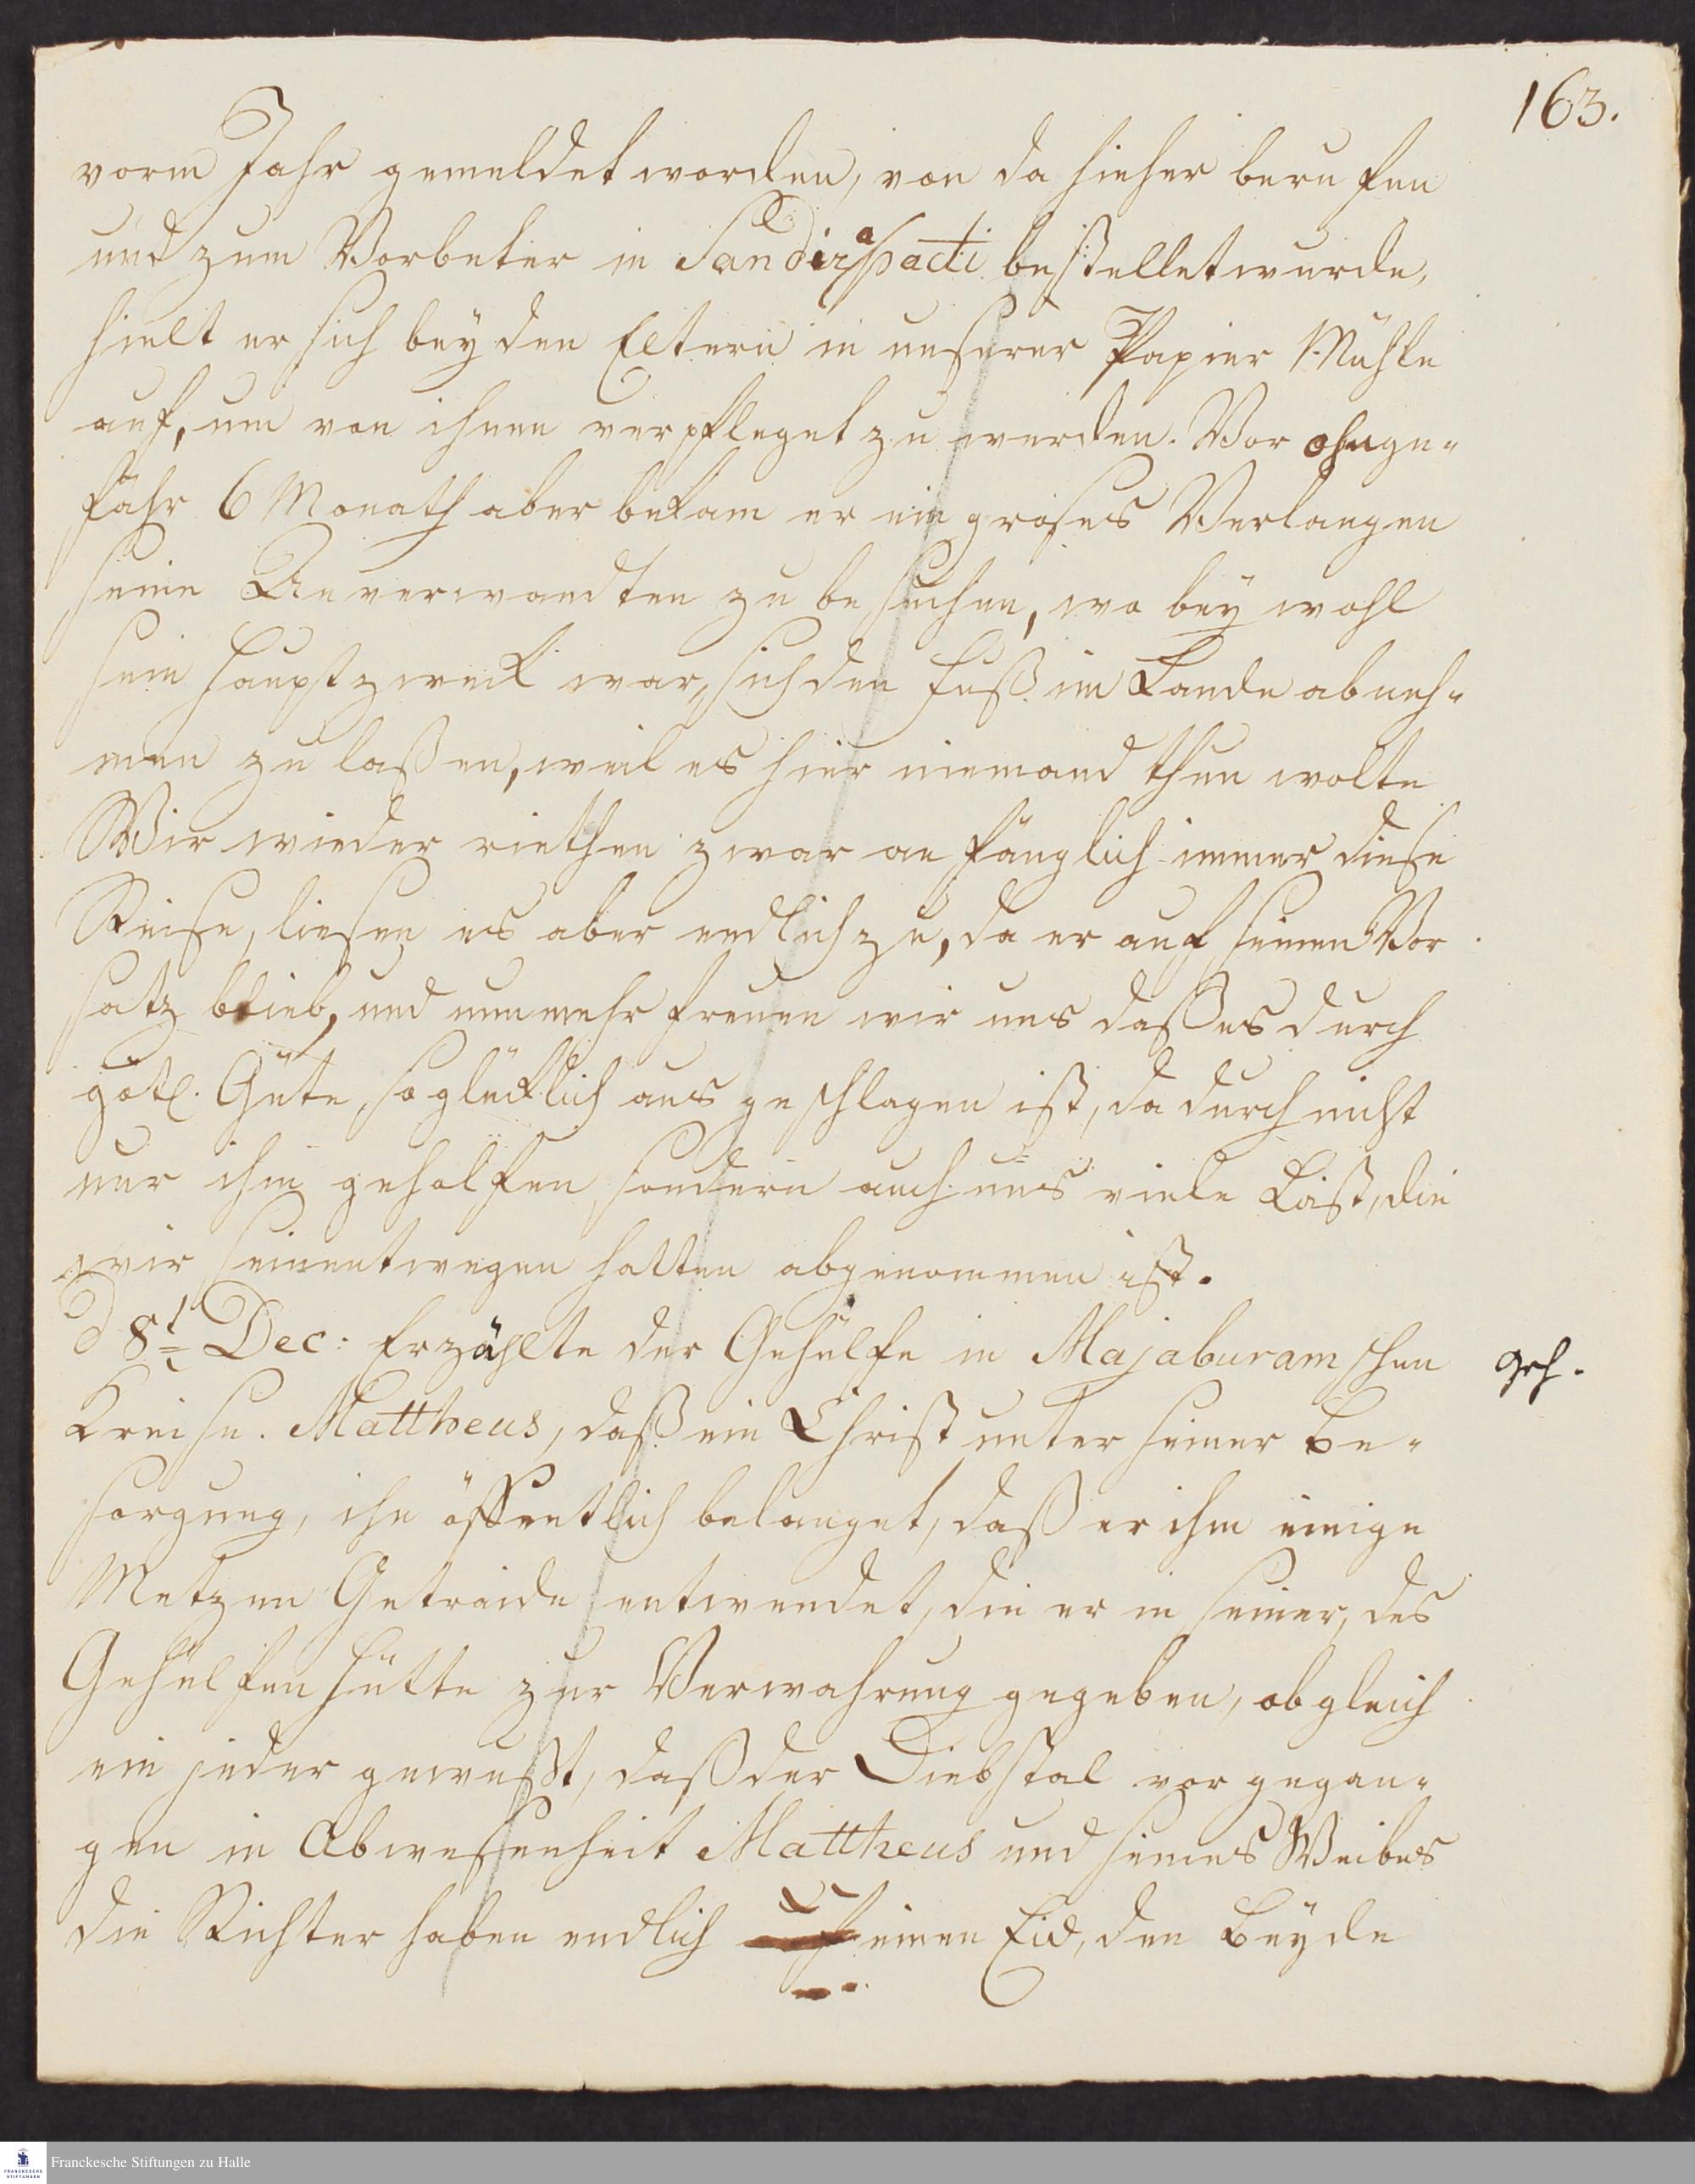 163.
vorm Jahr gemeldet worden, von da hieher berufen
und zum Vorbeter in Sandirapadi bestellet wurde,
hielt er sich bey den Eltern in unserer Papier Mühle
auf, um von ihnen verpfleget zu werden. Vor ohnge-
fähr 6 Monath aber bekam er ein groses Verlangen
seine Anverwandten zu besuchen, wo bey wohl
sein Hauptzweck war, sich den Fuß im Lande abneh-
men zu laßen, weil es hier niemand thun wolte
Wir wieder riethen zwar anfänglich immer diese
Reise, liesen es aber endlich zu, da er auf seinen Vor
satz blieb, und nunmehr freuen wir uns daß es durch
götl. Güte, so glücklich aus geschlagen ist, da durch nicht
nur ihm geholfen sondern auch uns viele Last, die
wir seinentwegen hatten abgenommen ist.
d 8t Dec: Erzählte der Gehülfe in Majaburam schen
Kreise. Mattheus, daß ein Christ unter seiner Be-
sorgung, ihn öffentlich belanget, daß er ihm einige
Metzen Getraide entwendet, die er in seiner, des
Gehülfen Hütte zur Verwahrung gegeben, obgleich
ein jeder gewußt, daß der Diebstal vor gegan-
gen in Abwesenheit Mattheus und seines Weibes
die Richter haben endlich einen Eid, den Beyde
geh.
Franckesche Stiftungen zu Halle
FRANCKESCHE
STIFTUNGEN